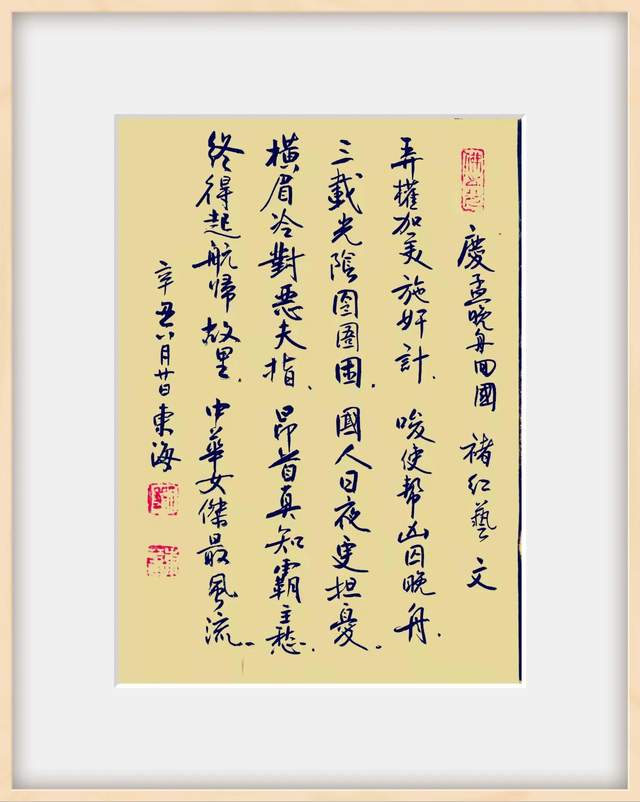 慶孟晚舟回國 褚红藝 文
弄權加美施奸計. 唆使帮凶囚晚舟.
三載光陰囹圄困. 國人日夜更担憂.
橫眉冷對惡夫指. 昂首真知霸主愁.
終得起航歸故里. 中華女傑最風流.
辛丑八月廿日東海